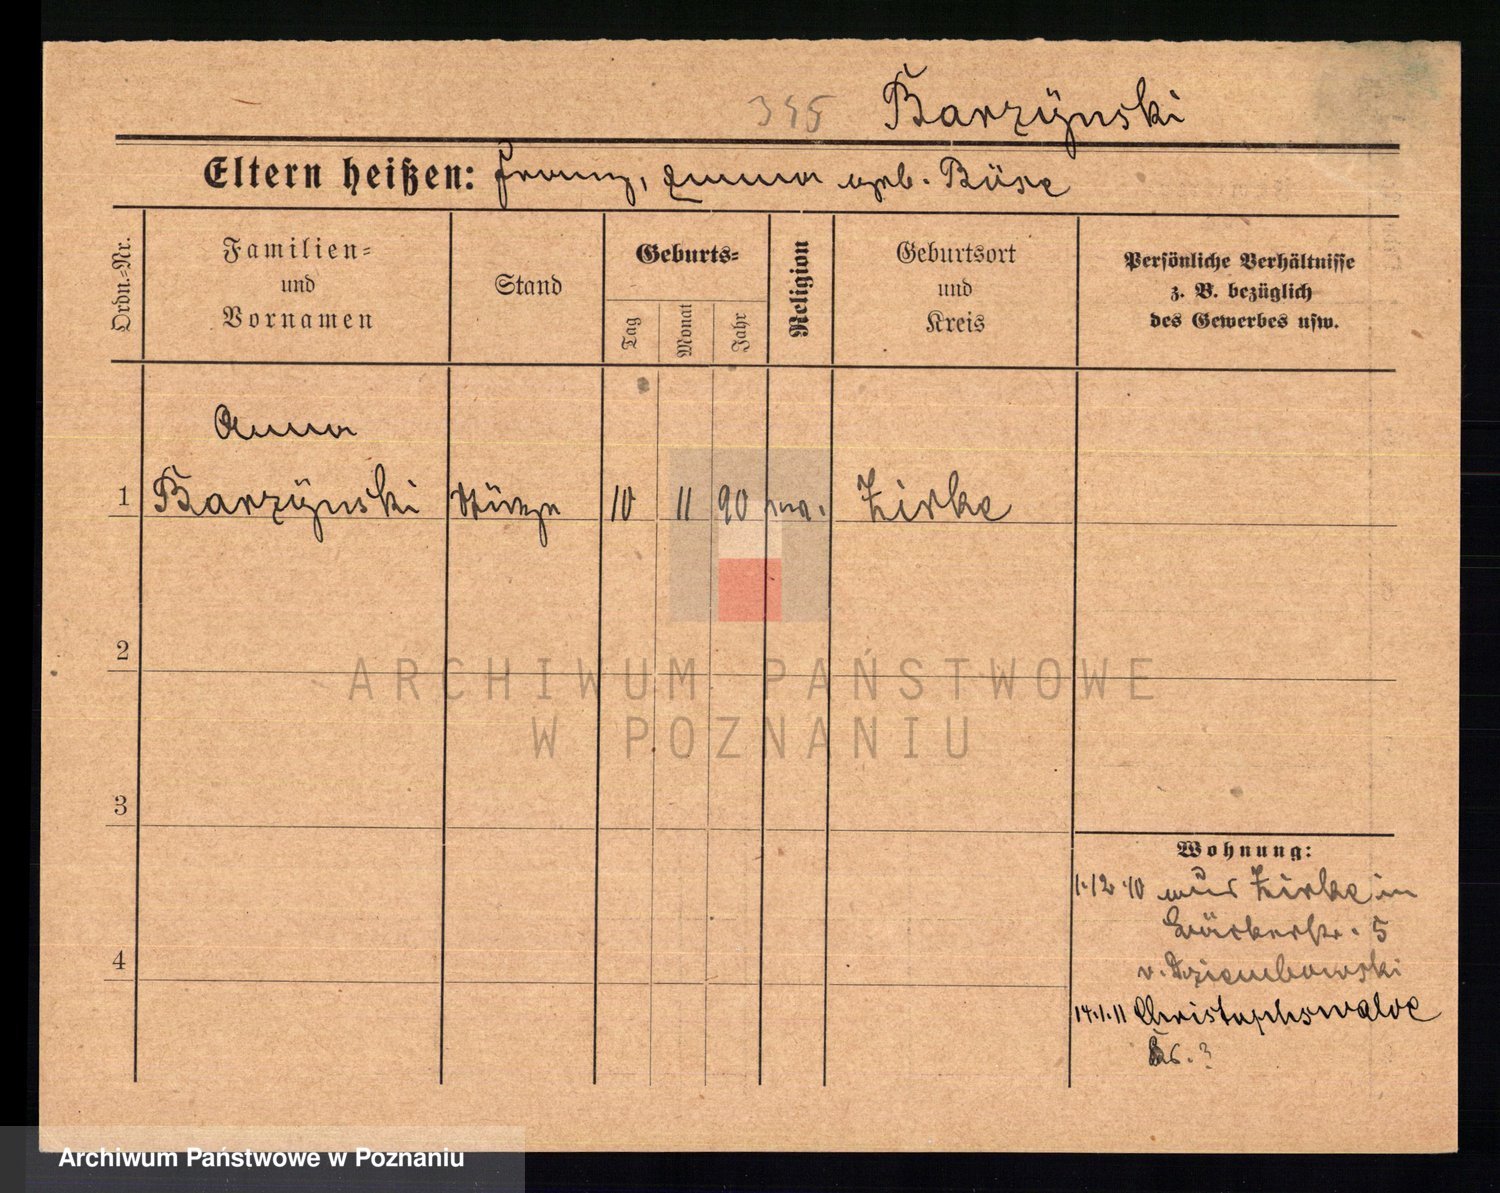 345 Barzÿnski
Eltern heißen: Franz, Emma geb. Büse
Ordn.=Nr.
Familien=
und
Vornamen
Stand
Geburts=
Tag
Monat
Jahr
Religion
Geburtsort
und
Kreis
Persönliche Verhältnisse
z. B. bezüglich
des Gewerbes usw.
Anna
1 Barzÿnski Stütze 10 11 90 Zirke
2
3
4
Wohnung:
1.12.10 aus Zirke in
5
v. Dziembowski
14.1.11 Christophswalde
ARCHIWUM PAŃSTWOWE
W POZNANIU
Archiwum Państwowe w Poznaniu